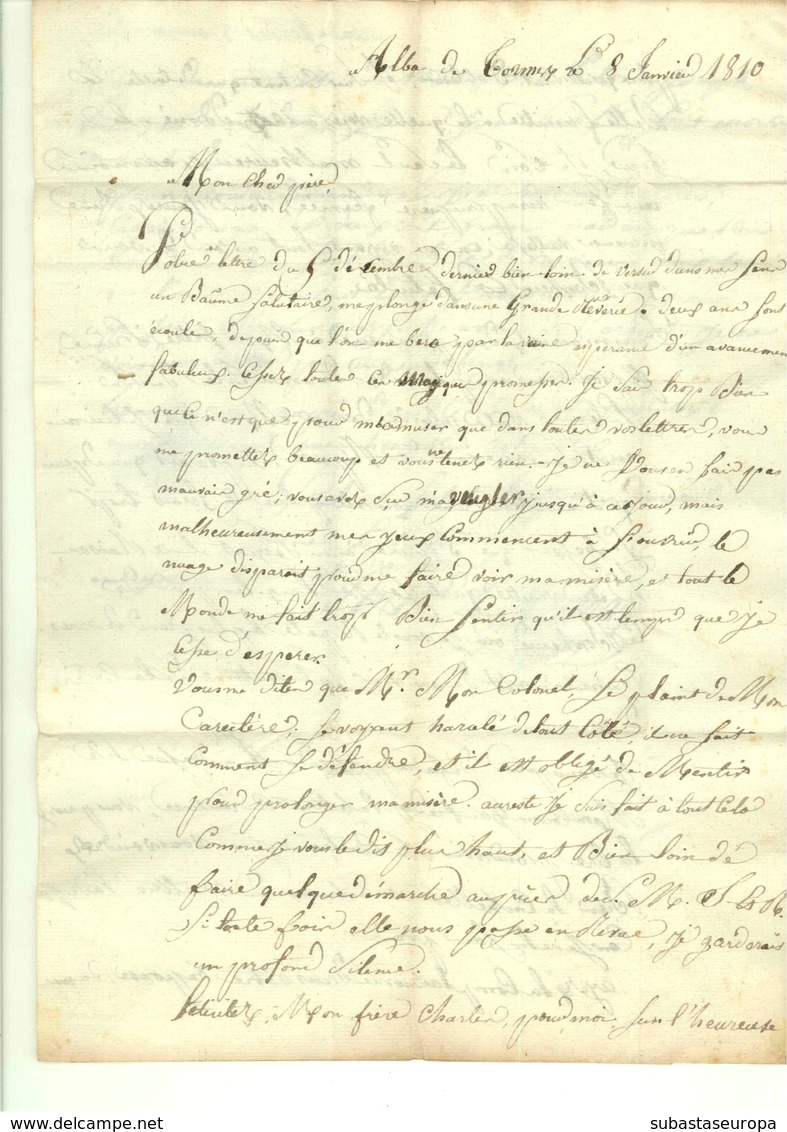 Alba de Tormes le 8 Janvier 1810
Mon cher père,
Votre lettre du 5 décembre dernier bien loin de verser dans mes sens
un Baûme salutaire, me plonge dans une Grande Rêverie. deux ans sont
écoulé, depuis que l'on me berce par la vaine esperance d'un avancement
fabuleux. Cessez toutes ces magiques promesses. Je sais trop Bien
que ce n'est que pour m'amuser que dans toutes vos lettres, vous
me promettez beaucoup et vous ne tenez rien. Je ne vous en sais pas
mauvais gré; vous avez su m'aveugler jusqu'à ce jour, mais
malheureusement mes yeux commencent à s'ouvrir, le
nuage disparait pour me faire voir ma misère, et tout le
Monde me fait trop Bien sentir qu'il est temps que je
cesse d'esperer.
Vous me dites que Mr. Mon Colonel, se plaint de Mon
Carectère; se voyant haralé de tout Côté il ne sait
Comment se défendre, et il est obligé de Mentir
pour prolonger ma misère. au reste je suis fait à tout Cela
Comme je vous le dis plus haut, et Bien loin de
faire quelque démarche auprès de S. M.
Si toute fois elle nous passe en Revue, je garderais
un profond Silence.
felicitez Mon frère Charles, pour moi, sur l'heureuse
subastaseuropa